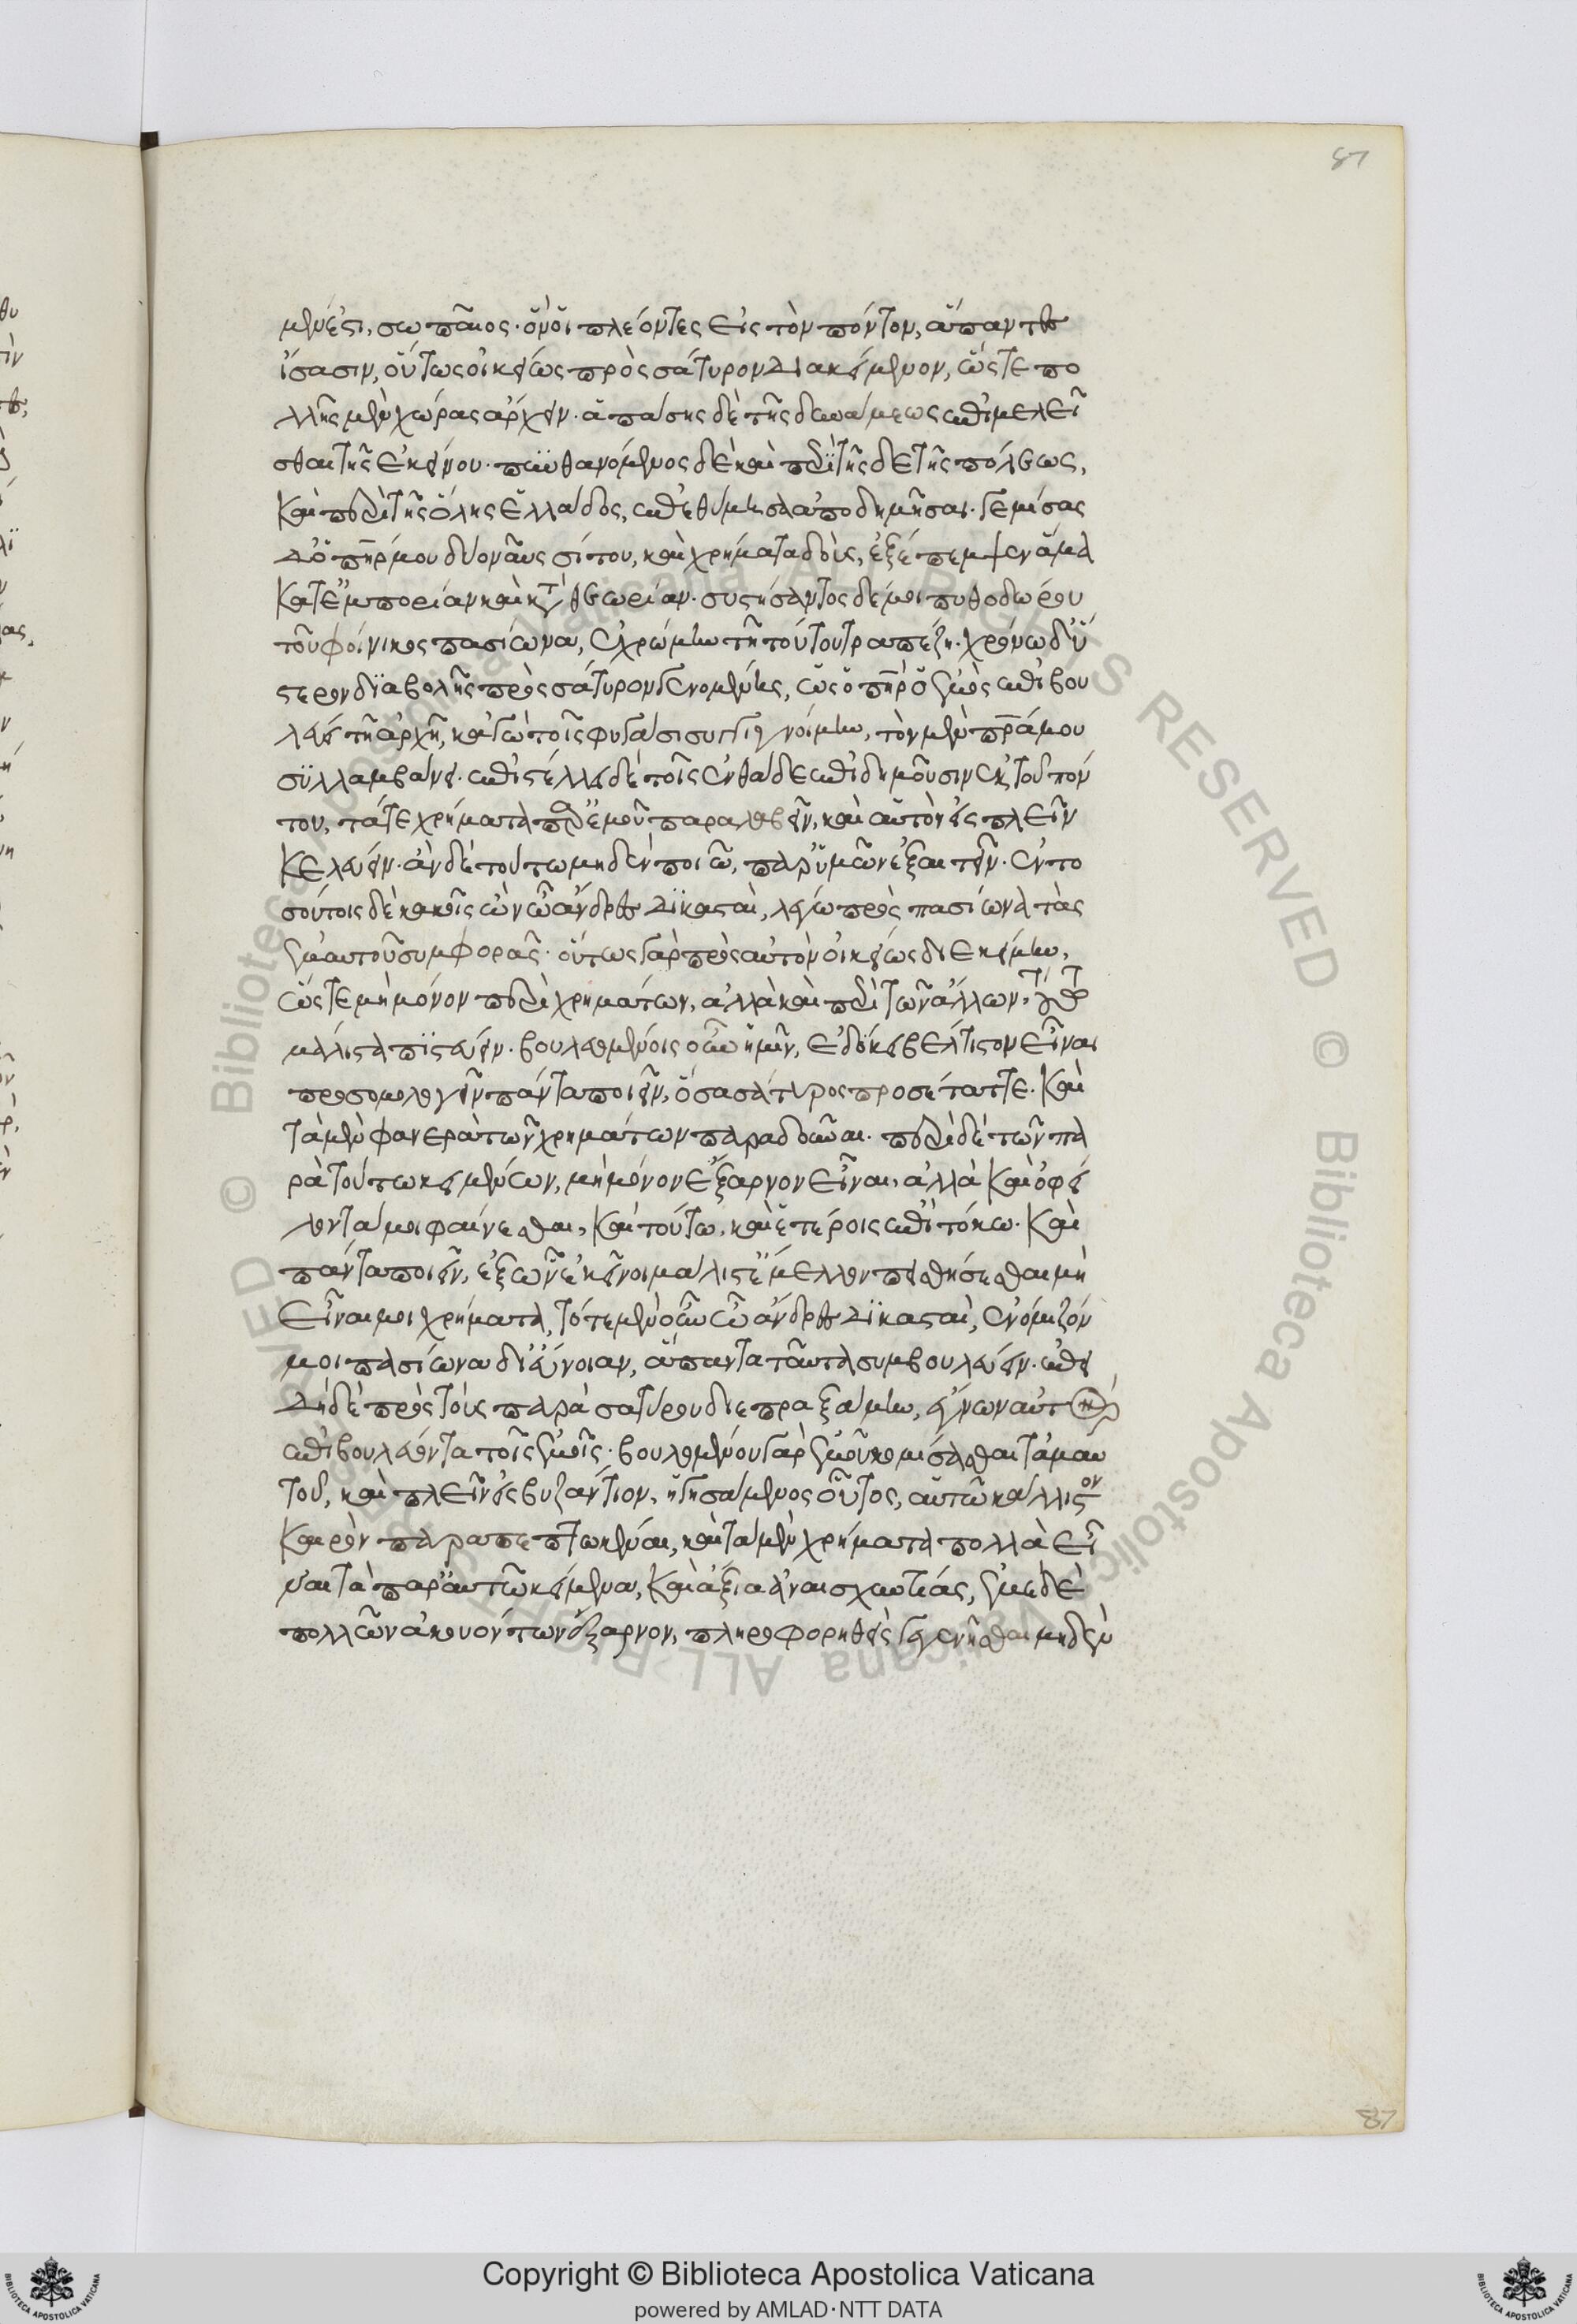 87
μὲν ἔστι, σωπαῖος. ὃν οἱ πλέοντες εἰς τὸν πόντον, ἅπαντες
ἴσασιν, οὕτως οἰκείως πρὸς σάτυρον διακείμενον, ὥστε πο
λλῆς μὲν χώρας ἄρχειν. ἁπάσης δὲ τῆς δυνάμεως ἐπιμελεῖ
σθαι τῆς ἐκείνου. πυνθανόμενος δὲ καὶ περὶ τῆσδε τῆς πόλεως,
καὶ περὶ τῆς ὅλης ἑλλάδος, ἐπεθύμησα ἀποδημῆσαι. γεμίσας
δ' ὁ πατήρ μου δύο ναῦς σίτου, καὶ χρήματα δοὺς, ἐξέπεμψεν ἅμα
κατ' ἐμπορίαν καὶ κατὰ θεωρίαν. συστήσαντος δέ μοι πυθοδώρου
τοῦ φοίνικος πασίωνα, ἐχρώμην τῇ τούτου τραπέζῃ. χρόνῳ δ' ὕ
στερον διαβολῆς πρὸς σάτυρον γενομένης, ὡς ὁ πατὴρ ὁ ἐμὸς ἐπιβου
λεύει τῇ ἀρχῇ, κἀγὼ τοῖς φυγάσι συγγιγνοίμην, τὸν μὲν πατέρα μου
συλλαμβάνει. ἐπιστέλλει δὲ τοῖς ἐνθάδε ἐπιδημοῦσιν ἐκ τοῦ πόν
του, τά τε χρήματα παρ' ἐμοῦ παραλαβεῖν, καὶ αὐτὸν εἰσπλεῖν
κελεύειν. ἂν δὲ τούτων μηδὲν ποιῶ, παρ' ὑμῶν ἐξαιτεῖν. ἐν το
σούτοις δὲ κακοῖς ὢν ὦ ἄνδρες δικασταὶ, λέγω πρὸς πασίωνα τὰς
ἐμαυτοῦ συμφοράς. οὕτως γὰρ πρὸς αὐτὸν οἰκείως διεκείμην,
ὥστε μὴ μόνον περὶ χρημάτων, ἀλλὰ καὶ περὶ τῶν ἄλλων, τούτῳ
μάλιστα πιστεύειν. βουλευομένοις οὖν ἡμῖν, ἐδόκει βέλτιστον εἶναι
προσομολογεῖν πάντα ποιεῖν, ὅσα σάτυρος προσέταττε. καὶ
τὰ μὲν φανερὰ τῶν χρημάτων παραδοῦναι. περὶ δὲ τῶν πα
ρὰ τούτῳ κειμένων, μὴ μόνον ἔξαρνον εἶναι, ἀλλὰ καὶ ὀφεί
λοντά με φαίνεσθαι, καὶ τούτῳ, καὶ ἑτέροις ἐπὶ τόκῳ. καὶ
πάντα ποιεῖν, ἐξ ὧν ἐκεῖνοι μάλιστ' ἔμελλον πεισθήσεσθαι μὴ
εἶναι μοι χρήματα, τότε μὲν οὖν ὦ ἄνδρες δικασταὶ, ἐνόμιζόν
μοι πασίωνα δι' εὔνοιαν, ἅπαντα ταῦτα συμβουλεύειν. ἐπει
δὴ δὲ πρὸς τοὺς παρὰ σατύρου διεπραξάμην, ἔγνων αὐτὸν
ἐπιβουλεύοντα τοῖς ἐμοῖς. βουλομένου γὰρ ἐμοῦ κομίσασθαι τἀμαυ
τοῦ, καὶ πλεῖν εἰς βυζάντιον, ἡγησάμενος οὗτος, αὐτῷ κάλλιστον
καιρὸν παραπεπτωκέναι, καὶ τὰ μὲν χρήματα πολλὰ εἶ
ναι τὰ παρ' αὐτῷ κείμενα, καὶ ἄξια ἀναισχυντίας, ἐμὲ δὲ
πολλῶν ἀκουόντων ἔξαρνον, πληροφορηθεὶς γεγενῆσθαι μηδὲν
87
Copyright © Biblioteca Apostolica Vaticana
powered by AMLAD·NTT DATA